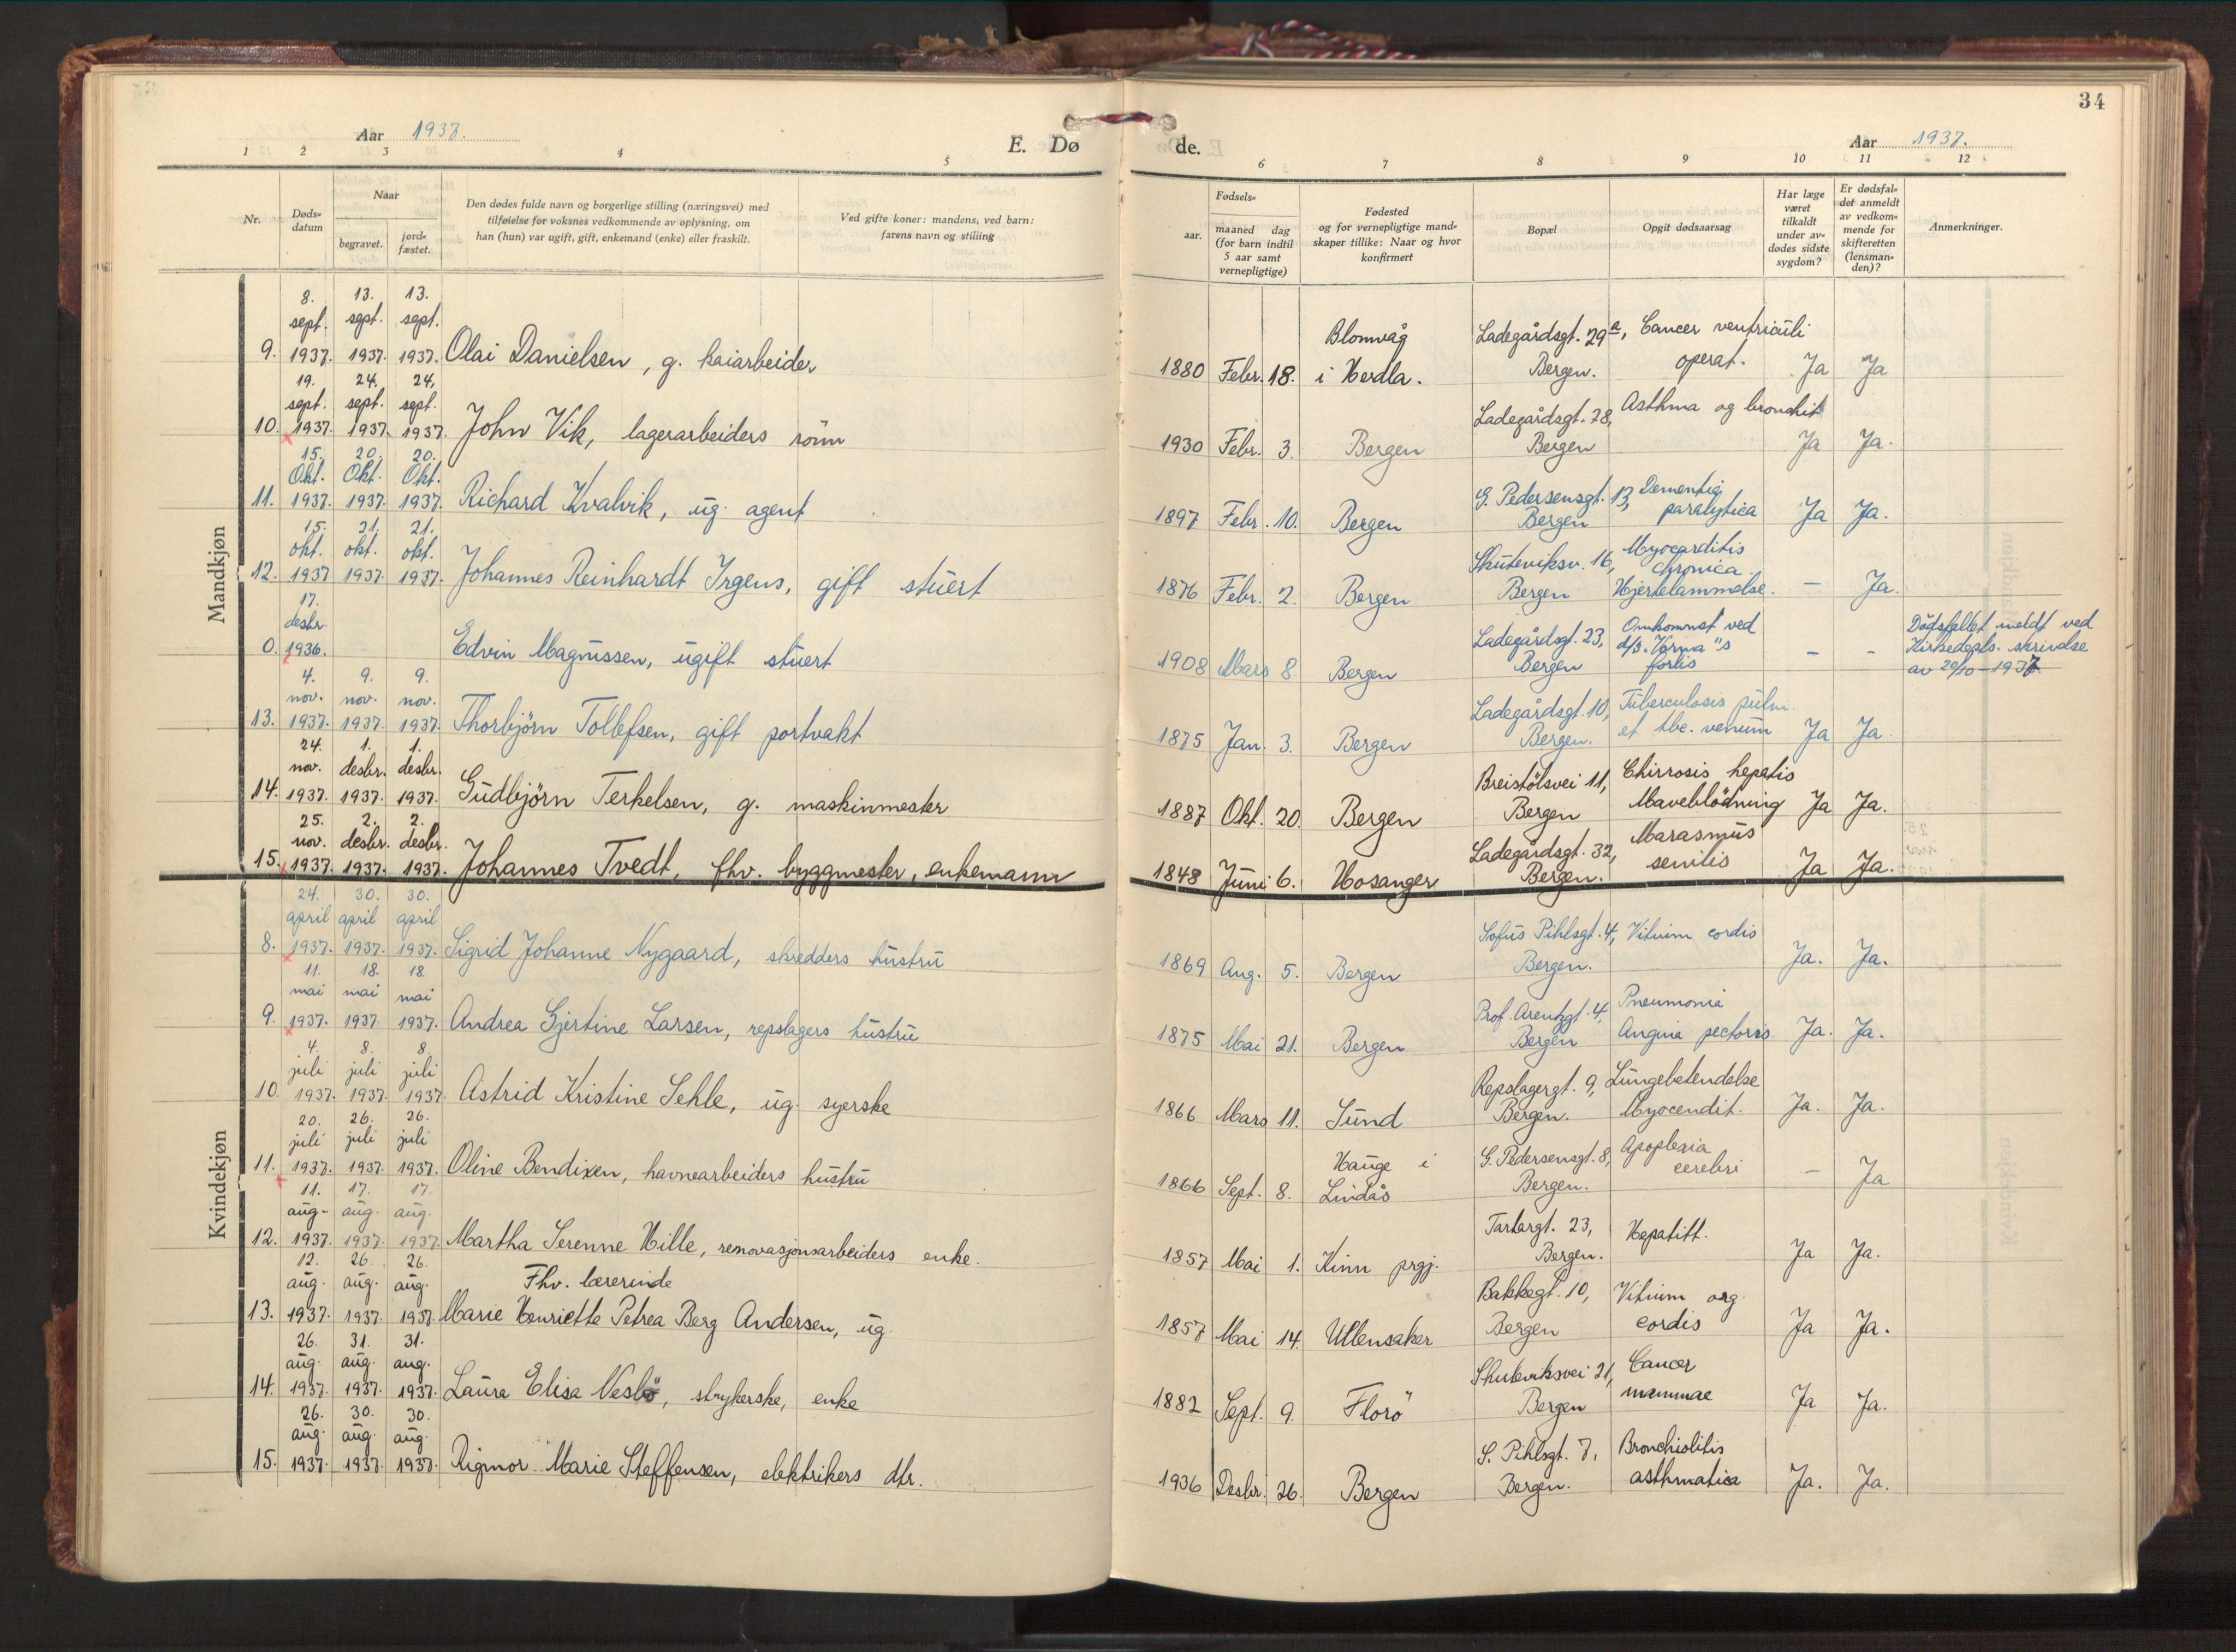 34
Aar 1937.
E. Dø
de.
Aar 1937.
1 2 3 4 5 6 7 8 9 10 11 12
Nr.
Døds-
datum
Naar
begravet.
jord-
fæstet.
Den dødes fulde navn og borgerlige stilling (næringsvei) med
tilføielse for voksnes vedkommende av oplysning, om
han (hun) var ugift, gift, enkemand (enke) eller fraskilt.
Ved gifte koner: mandens, ved barn:
farens navn og stilling
Fødsels-
aar.
maaned dag
(for barn indtil
5 aar samt
vernepligtige)
Fødested
og for vernepligtige mand-
skaper tillike: Naar og hvor
konfirmert
Bopæl
Opgit dødsaarsag
Har læge
været
tilkaldt
under av-
dødes sidste
sygdom?
Er dødsfal-
det anmeldt
av vedkom-
mende for
skifteretten
(lensman-
den)?
Anmerkninger.
Mandkjøn
8. 13. 13.
sept. sept. sept.
9. 1937. 1937. 1937. Olai Danielsen, g. kaiarbeider
Blomvåg Ladegårdsgt. 29a, Cancer ventriculi
1880 Febr. 18. i Herdla. Bergen. operat. Ja Ja
19. 24. 24.
sept. sept. sept.
10. 1937. 1937. 1937. John Vik, lagerarbeiders sönn
Ladegårdsgt. 28, Asthma og bronchit
1930 Febr. 3. Bergen Bergen Ja Ja.
15. 20. 20.
Okt. Okt. Okt.
11. 1937. 1937. 1937. Richard Kvalvik, ug. agent
G. Pedersensgt. 13, Dementia
1897 Febr. 10. Bergen Bergen paralytica Ja Ja.
15. 21. 21.
okt. okt. okt.
12. 1937 1937. 1937. Johannes Reinhardt Irgens, gift stuert
Skuteviksv. 16, Myocarditis
chronica.
1876 Febr. 2. Bergen Bergen Hjertelammelse. - Ja.
17.
desbr.
0. 1936. Edvin Magnussen, ugift stuert
Ladegårdsgt. 23, Omkommet ved Dödsfallet meldt ved
d/s "Varna"s Kirkedepts. skrivelse
1908 Mars 8 Bergen Bergen forlis - - av 29/10-1937.
4. 9. 9.
nov. nov. nov.
13. 1937. 1937. 1937. Thorbjörn Tollefsen, gift portvakt
Ladegårdsgt. 10, Tuberculosis pulm.
1875 Jan. 3. Bergen Bergen. et tbc. Ja Ja
24. 1. 1.
nov. desbr. desbr.
14. 1937. 1937. 1937. Gudbjörn Terkelsen, g. maskinmester
Breistölsvei 11, Chirrosis hepatis
1887 Okt. 20. Bergen Bergen Maveblödning Ja Ja.
25. 2. 2.
nov. desbr. desbr.
15. 1937. 1937. 1937. Johannes Tvedt, fhv. byggmester, enkemann
Ladegårdsgt. 32, Marasmus
1848 Juni 6. Hosanger Bergen. senilis Ja Ja.
Kvindekjøn
24. 30. 30.
april april april
8. 1937. 1937. 1937. Sigrid Johanne Nygaard, skredders hustru
Sofus Pihlsgt. 4, Vitium cordis
1869 Aug. 5. Bergen Bergen. Ja. Ja.
11. 18. 18.
mai mai mai
9. 1937. 1937. 1937. Andrea Gjertine Larsen, repslagers hustru
Prof. Arentzgt. 4, Pneumonia
1875 Mai 21. Bergen Bergen Angina pectoris Ja. Ja.
4. 8. 8.
juli juli juli
10. 1937. 1937. 1937. Astrid Kristine Sehle, ug. syerske
Repslagergt. 9, Lungebetendelse
1866 Mars 11. Sund Bergen. Myocendit. Ja. Ja.
20. 26. 26.
juli juli juli
11. 1937. 1937. 1937. Oline Bendixen, havnearbeiders hustru
Hauge i G. Pedersensgt. 8, Apoplexia
1866 Sept. 8. Lindås Bergen. cerebri - Ja
11. 17. 17.
aug. aug. aug.
12. 1937. 1937. 1937. Martha Serenne Hille, renovasjonsarbeiders enke.
Tartargt. 23, Hepatitt.
1857 Mai 1. Kinn prgj. Bergen. Ja Ja.
12. 26. 26.
aug. aug. aug. Fhv. lærerinde
13. 1937. 1937. 1937. Marie Henriette Petrea Berg Andersen, ug.
Bakkegt. 10, Vitium org.
1857 Mai 14. Ullensaker Bergen cordis Ja Ja.
26. 31. 31.
aug. aug. aug.
14. 1937. 1937. 1937. Laura Elisa Nesbö, strykerske, enke
Skuteviksvei 21, Cancer
1882 Sept. 9. Florö Bergen mammae Ja Ja.
26. 30. 30.
aug. aug. aug.
15. 1937. 1937. 1937. Rigmor Marie Steffensen, elektrikers dtr.
S. Pihlsgt. 7, Bronchiolitis
1936 Desbr. 26. Bergen Bergen. asthmatica Ja. Ja.